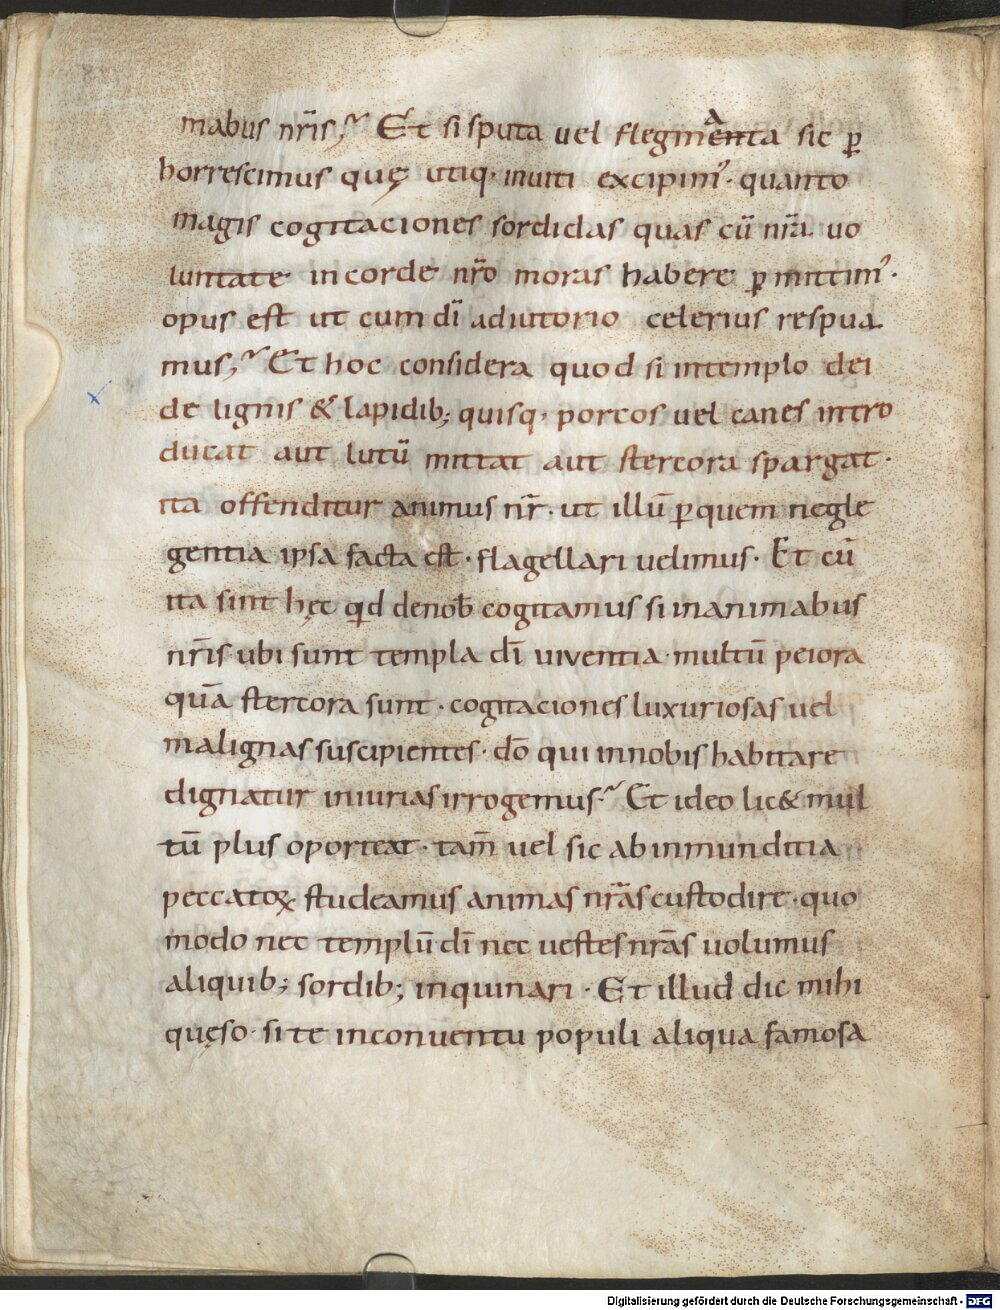 mabus nr̄is; Et si sputa vel flegmenta sic ꝑ
horrescimus quę utiq· inuiti excipim᾽· quanto
magis cogitaciones sordidas quas cū nrā uo
luntate in corde nr̄o moras habere ꝑmittim᾽·
opus est ut cum dī adiutorio celerius respua
mus; Et hoc considera quod si intemplo dei
de lignis & lapidib; quisq· porcos uel canes intro
ducat aut lutū mittat aut stercora spargat·
ita offenditur animus nr̄· ut illū ꝑquem negle
gentia ipsa facta est· flagellari uelimus· Et cū
ita sint hęc qd denob̄ cogitamus si inanimabus
nr̄is ubi sunt templa dī uiventia· multū peiora
quā stercora sunt· cogitaciones luxuriosas uel
malignas suscipientes· dō qui innobis habitare
dignatur iniurias irrogemus· Et ideo lic& mul
tū plus oporteat· tam̄ uel sic ab inmunditia
peccatoꝝ· studeamus animas nrās custodire· quo
modo nec templū dī nec uestes nrās uolumus
aliquib; sordib; inquinari· Et illud dic mihi
quęso· si te inconuentu populi aliqua famosa
Digitalisierung gefördert durch die Deutsche Forschungsgemeinschaft - DFG